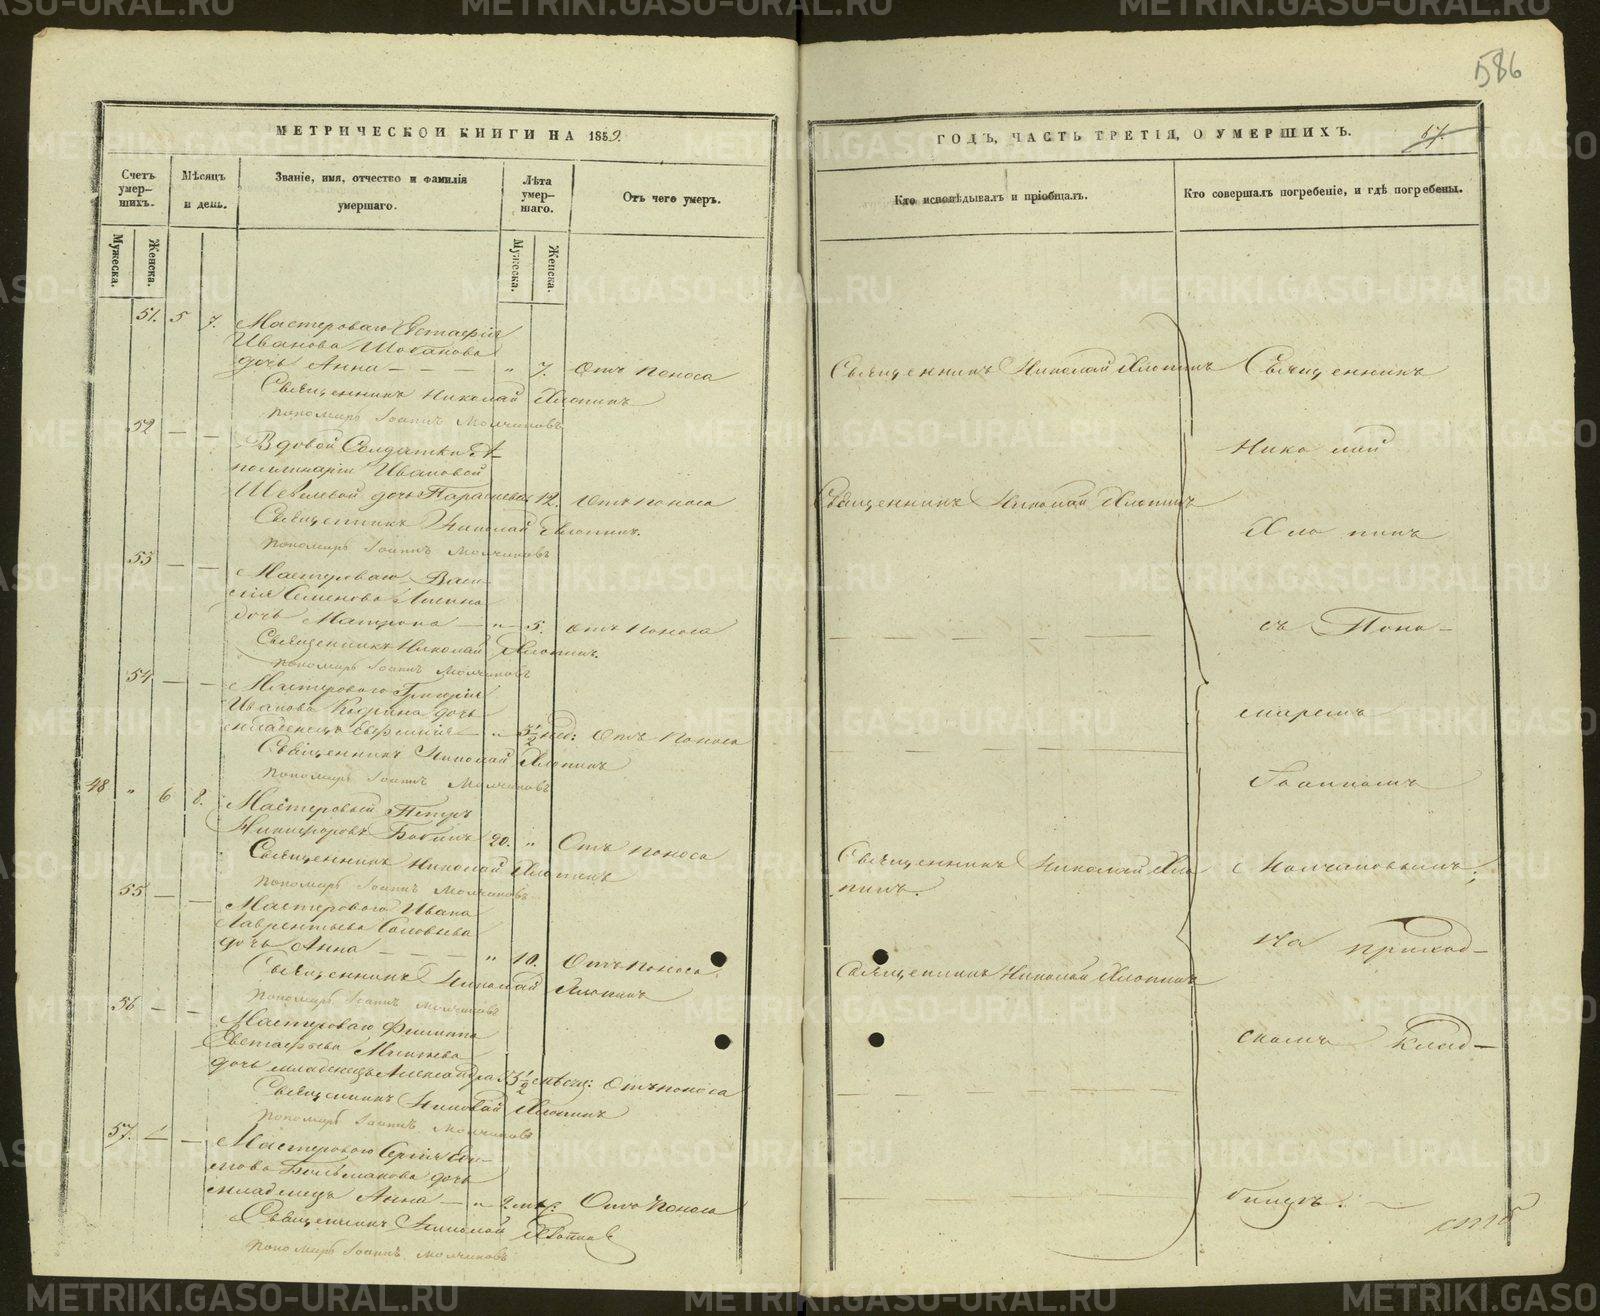 586
МЕТРИЧЕСКОЙ КНИГИ НА 1859.
ГОДЪ, ЧАСТЬ ТРЕТІЯ, О УМЕРШИХЪ.
Счетъ умер-шихъ.
Мужеска.
Женска.
Мѣсяцъ и день.
Званіе, имя, отчество и фамилія умершаго.
Лѣта умер-шаго.
Мужеска.
Женска.
Отъ чего умеръ.
Кто исповѣдывалъ и пріобщалъ.
Кто совершалъ погребеніе, и гдѣ погребены.
51. 5 7. Мастероваго Евстафія
Иванова
дочь Анна — — — " 7. Отъ поноса
Священникъ Николай Хлопинъ
Священникъ Николай Хлопинъ
Пономарь Іоаннъ Молчановъ
52 — — Вдовой Солдатки А-
поллинаріи Ивановой
дочь Параскева 12. Отъ поноса
Священникъ Николай Хлопинъ
Священникъ Николай Хлопинъ.
Пономарь Іоаннъ Молчановъ
53 — — Мастероваго Васи-
лія Семенова
дочь Матрона — " 5. Отъ поноса
Священникъ Николай Хлопинъ.
Пономарь Іоаннъ Молчановъ
54 — — Мастероваго Григорія
Иванова дочь
младенецъ Евфимія — " 3½ нед: Отъ поноса
Священникъ Николай Хлопинъ
Пономарь Іоаннъ Молчановъ
48 " 6 8. Мастеровый Петръ
Никифоровъ 20. " Отъ поноса
Священникъ Николай Хло-
пинъ.
Священникъ Николай Хлопинъ
Пономарь Іоаннъ Молчановъ
55 — — Мастероваго Ивана
Лаврентьева Соловьева
дочь Анна — — — " 10. Отъ поноса.
Священникъ Николай Хлопинъ
Священникъ Николай Хлопинъ
Пономарь Іоаннъ Молчановъ
56 — — Мастероваго Филиппа
Евстафьева
дочь младенецъ Александра 5½ мѣсяц: Отъ поноса
Священникъ Николай Хлопинъ
Пономарь Іоаннъ Молчановъ
57. — — Мастероваго Сергія
дочь
младенецъ Анна — " 2 мѣс: Отъ поноса
Священникъ Николай Хлопинъ
Пономарь Іоаннъ Молчановъ
Священникъ
Николай
Хлопинъ
съ Поно-
маремъ
Іоанномъ
Молчановымъ,
на приход-
скомъ клад-
бищѣ.
METRIKI.GASO-URAL.RU